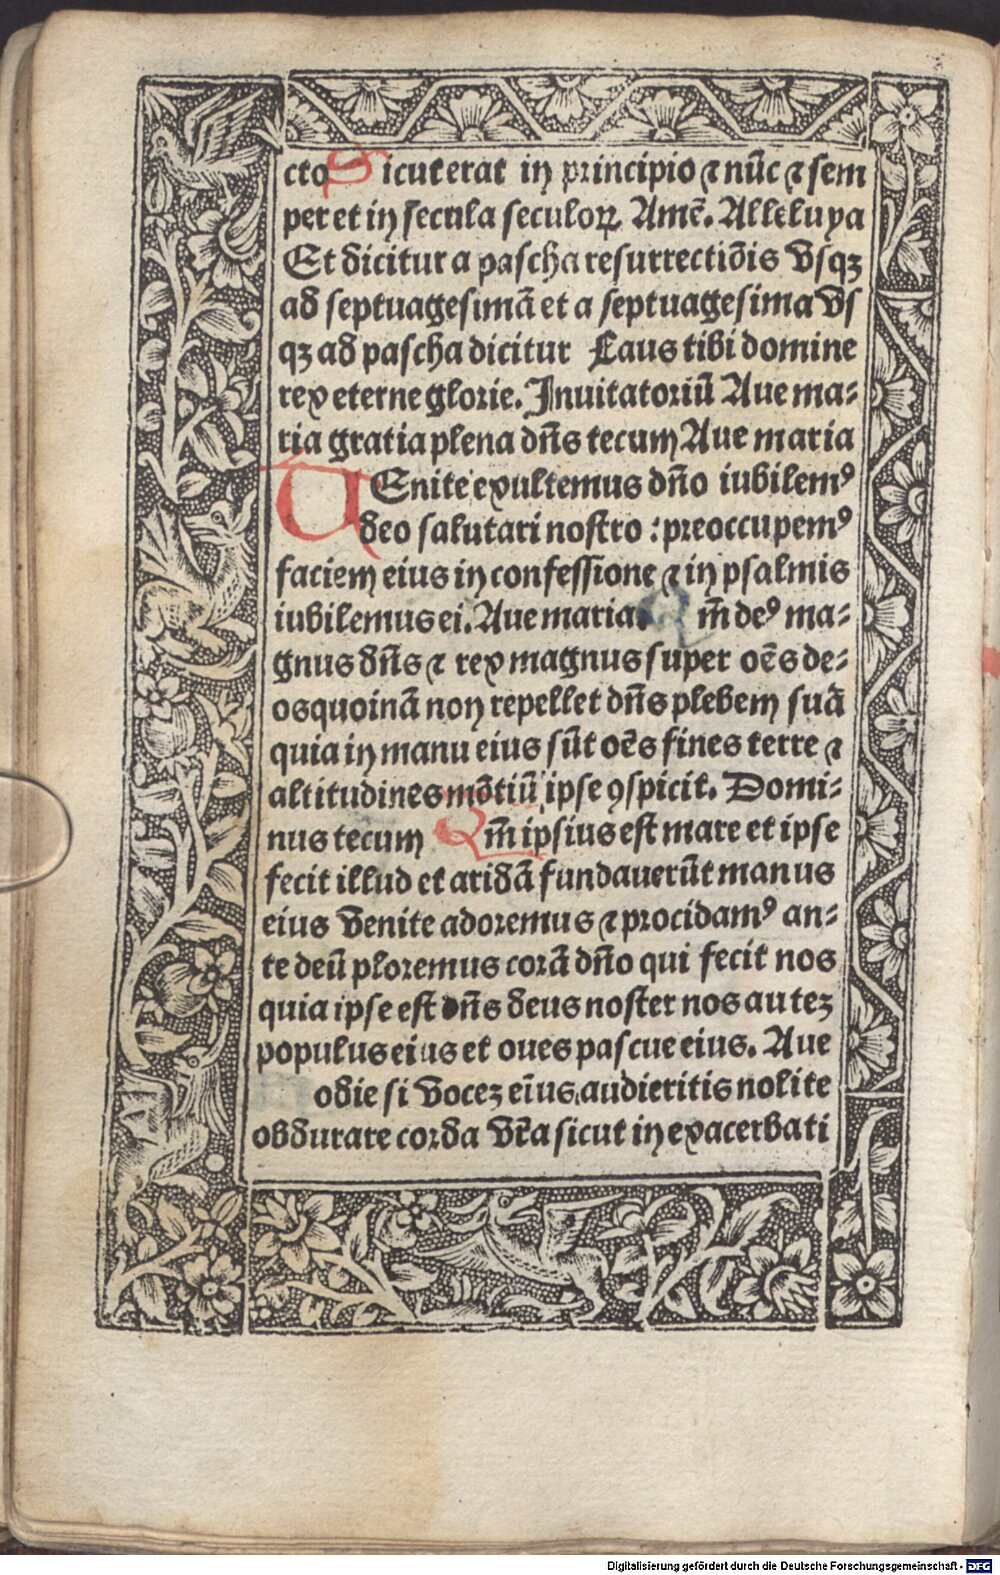 cto Sicut erat in principio ⁊ nūc ⁊ sem
per et in secula seculoꝝ Amē. Alleluya
Et dicitur a pascha resurrectiōis vsqꝫ
ad septuagesimā et a septuagesima vs
qꝫ ad pascha dicitur Laus tibi domine
rex eterne glorie. Inuitatoriū Aue ma-
ria gratia plena dn̄s tecum Aue maria
VEnite exultemus dn̄o iubilemꝰ
deo salutari nostro : preoccupemꝰ
faciem eius in confessione ⁊ in psalmis
iubilemus ei. Aue maria. Qm̄ deꝰ ma-
gnus dn̄s ⁊ rex magnus super oēs de-
os quoināg non repellet dn̄s plebem suā
quia in manu eius sūt oēs fines terre ⁊
altitudines mōtiū ipse ꝯspicit. Domi-
nus tecum Qm̄ ipsius est mare et ipse
fecit illud et aridā fundauerūt manus
eius venite adoremus ⁊ procidamꝰ an-
te deū ploremus corā dn̄o qui fecit nos
quia ipse est dn̄s deus noster nos auteꝫ
populus eius et oues pascue eius. Aue
odie si voceꝫ eius audieritis nolite
obdurare corda vr̄a sicut in exacerbati
Digitalisierung gefördert durch die Deutsche Forschungsgemeinschaft - DFG